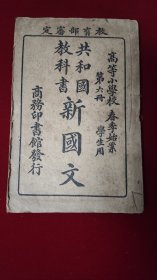 教育部審定
高等小學校 春季始業
第六冊 學生用
共和國
教科書
新國文
商務印書館發行